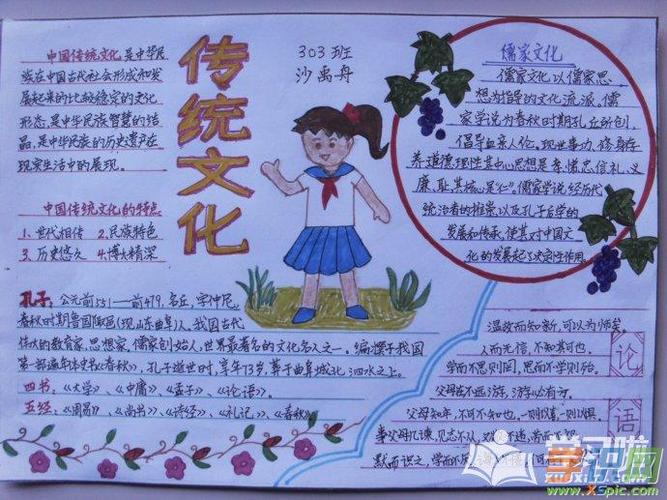 中国传统文化是中华民
族在中国古代社会形成和发
展起来的比较稳定的文化
形态,是中华民族智慧的结
晶,是中华民族的历史遗产在
现实生活中的展现。
中国传统文化的特点
1、世代相传 2.民族特色
3、历史悠久 4.博大精深
传统文化
303班
沙禹舟
儒家文化
儒家文化以儒家思
想为指导的文化流派。儒
家学说为春秋时期孔丘所创,
倡导血亲人伦、现世事功、修身存
养、道德理性其中心思想是孝、悌、忠、信、礼、义
廉、耻,其核心是“仁”。儒家学说经历代
统治者的推崇,以及孔子后学的
发展和传承,使其对中国文
化的发展起了决定性作用。
孔子:公元前551—前479,名丘,字仲尼,
春秋时期鲁国陬邑(现山东曲阜)人,我国古代
伟大的教育家、思想家、儒家创始人,世界最著名的文化名人之一。编撰了我国
第一部编年体史书《春秋》,孔子逝世时,享年73岁,葬于曲阜城北泗水之上。
四书:《大学》、《中庸》、《孟子》、《论语》。
五经:《周易》、《尚书》、《诗经》、《礼记》、《春秋》
论
语
温故而知新,可以为师矣。
人而无信,不知其可也。
学而不思则罔,思而不学则殆。
父母在不远游,游必有方。
父母之年,不可不知也,一则以喜,一则以惧。
事父母几谏,见志不从,又敬不违,劳而不怨
默而识之,学而不厌
学识网
www.xspic.com